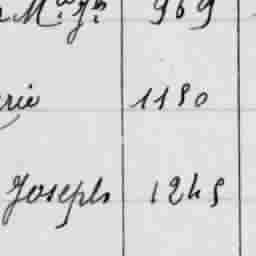 Mª Jª 969
rie 1180
Joseph 1245